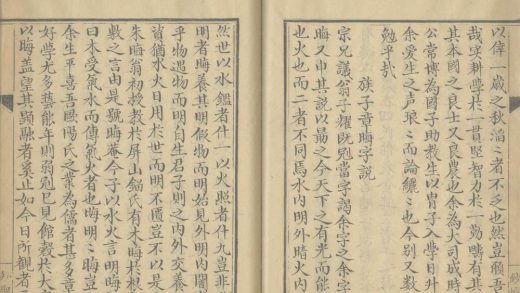 以俾一歲之秋滔〻者不乏也然豈賴吾
哉宰耕學於一貫堅智力於一勤疇有其
其本國之良士又良也余為大司成時
公常博為國子助教生以胄子入學日升
余爱生之声狼〻而論纚〻也今别又數
勉乎哉
族子章晦字説
宗兄議翁子耀既冠當字謁余字余字
晦又申其説以勗之今天下之有光而能
也火也而二者不同焉水内明外暗火内
然世以水鑑者什一以火照者什九豈非
明者晦養其明假物而明始見外明内闇
乎物遇物而明自生君子則之内外交養
皆猶水火日用於世而明不匱豈不以是
朱晦翁初授教於屏山氏有木晦於根
敷之言由是號晦菴今子以水火言明晦
曰木受氣水而傳氣火者也晦明〻晦豈
余生平喜吾歐陽氏之業為儒者甚多章
好學尤多藝能年弱冠已見館榖於大
以晦盖望其顯融者奚止如今日所觀者